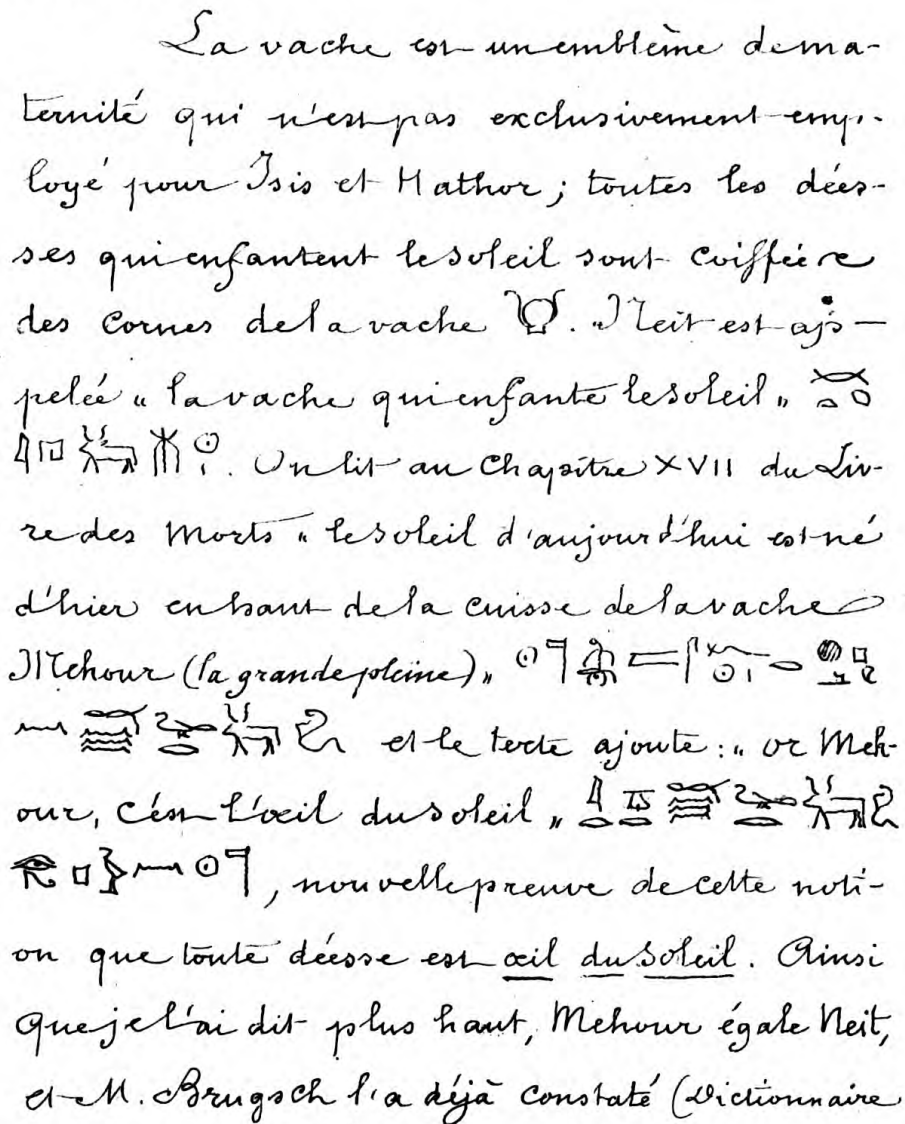 La vache est un emblème de ma-
ternité qui n'est pas exclusivement emp-
loyé pour Isis et Hathor ; toutes les dées-
ses qui enfantent le soleil sont coiffées
des cornes de la vache. Neit est ap-
pelée " la vache qui enfante le soleil "
On lit au Chapitre XVII du Liv-
re des Morts " le soleil d'aujourd'hui est né
d'hier en haut de la cuisse de la vache
Mehour (la grande pleine) "
et le texte ajoute : " or Meh-
our, c'est l'œil du soleil "
, nouvelle preuve de cette noti-
on que toute déesse est œil du soleil. Ainsi
que je l'ai dit plus haut, Mehour égale Neit,
et M. Brugsch l'a déjà constaté (Dictionnaire